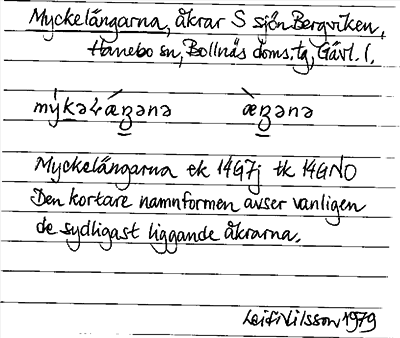 Myckelängarna, åkrar S sjön Bergviken,
Hanebo sn, Bollnäs doms. tg, Gävl. l.
mýkəlæŋənə æ̀ŋənə
Myckelängarna ek 14G7j tk 14GNO
Den kortare namnformen avser vanligen
de sydligast liggande åkrarna.
Leif Nilsson 1979